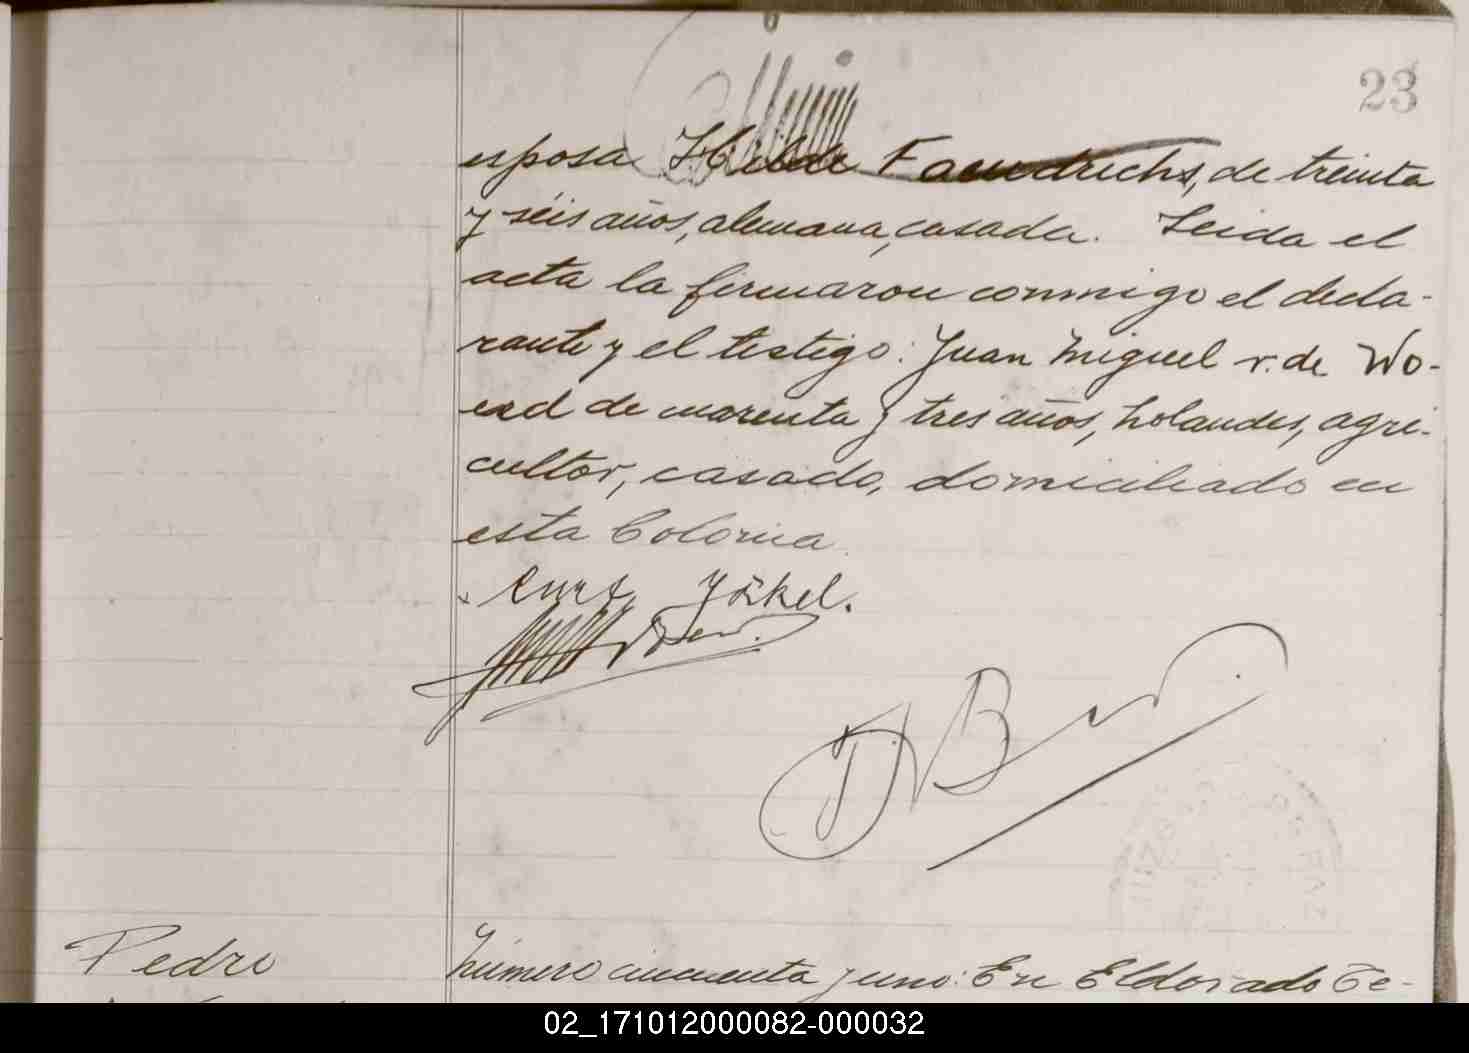 23
esposa Hilde Faendrichs, de treinta
y séis años, alemana, casada. Leida el
acta la firmaron conmigo el decla-
rante y el testigo: Juan Miguel v. de Wo-
erd de cuarenta y tres años, holandes, agri-
cultor, casado, domiciliado en
esta Colonia.
Curt Jäkel.
Pedro
Número cincuenta y uno: En Eldorado Te-
02_171012000082-000032